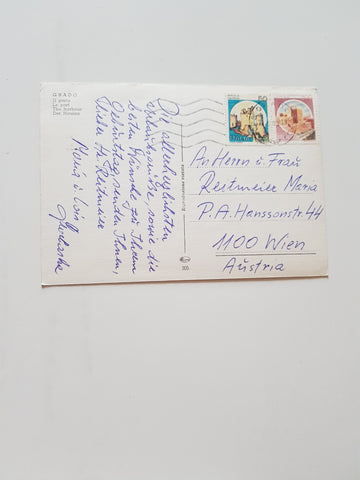 GRADO
Il porto
Le port
The harbour
Der Hafen
Die allerherzlichsten
Urlaubsgrüße, sowie die
besten Wünsche zu Ihrem
Geburtstag senden Ihnen,
lieber Hr. Reitmeier
Maria u.
An Herrn u. Frau
Reitmeier Maria
P.A. Hanssonstr. 44
1100 Wien
Austria